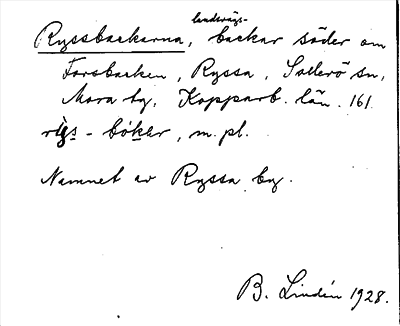 landsvägs-
Ryssbackarna, backar söder om
Forsbacken, Ryssa, Sollerö sn,
Mora tg, Kopparb. län. 161.
rɩ̀gs-bókər, m. pl.
Namnet av Ryssa by.
B. Lindén 1928.